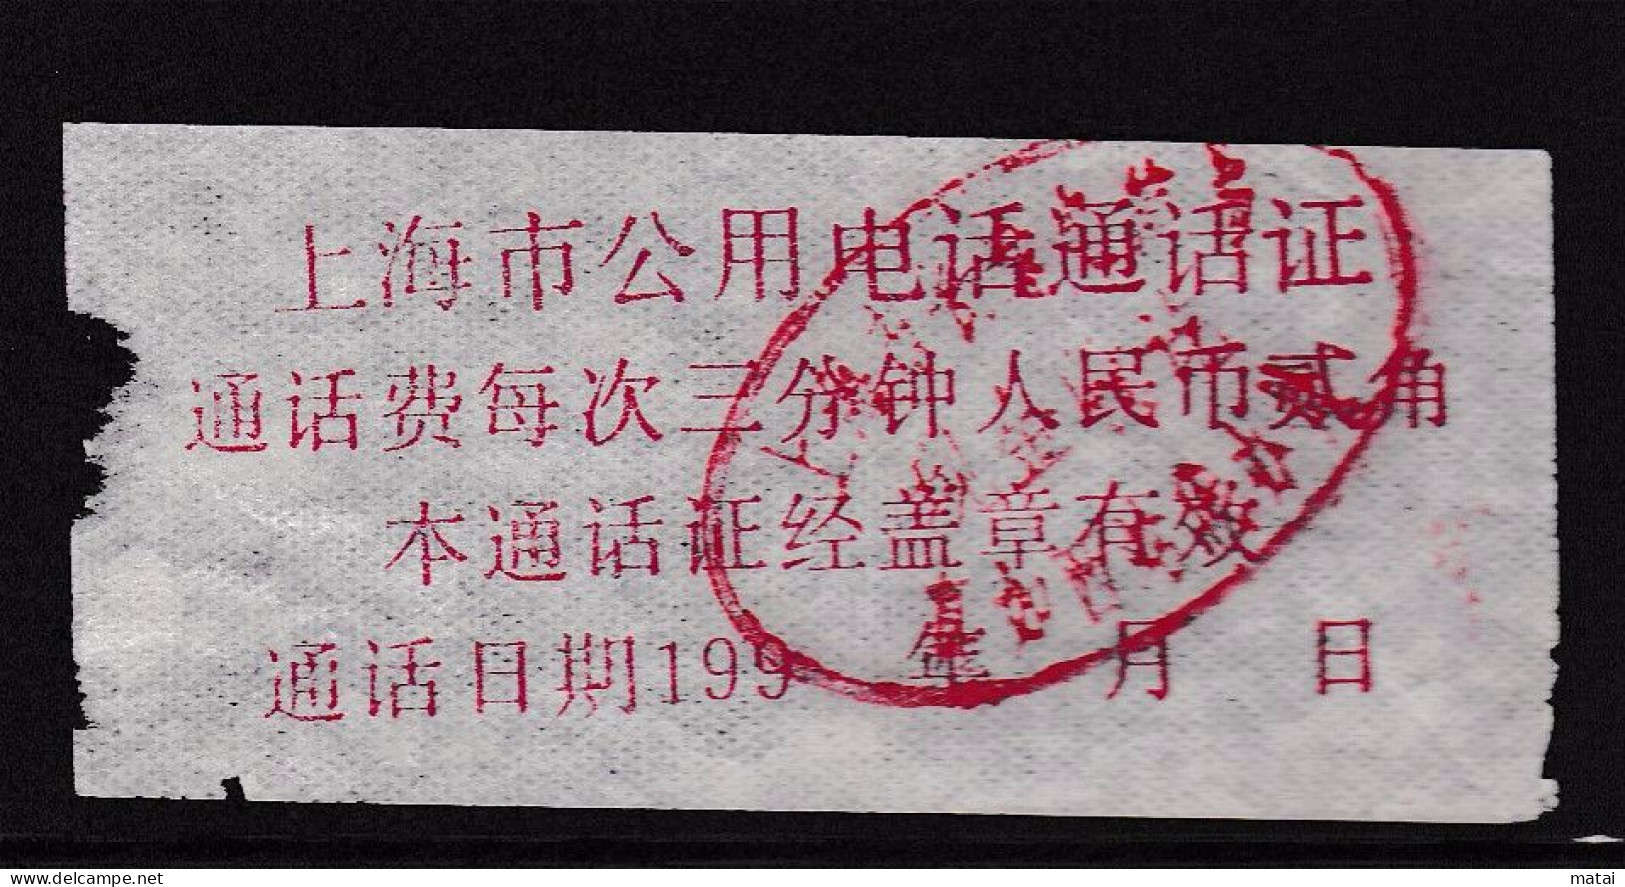 上海市公用电话通话证
通话费每次三分钟人民币贰角
本通话证经盖章有效
通话日期199 年 月 日
www.delcampe.net
matai